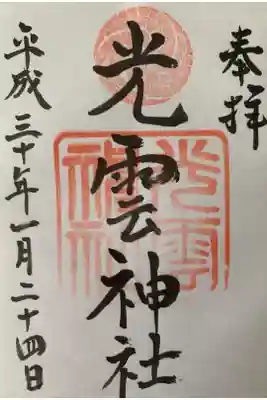 奉拝
光雲神社
平成三十年一月二十四日